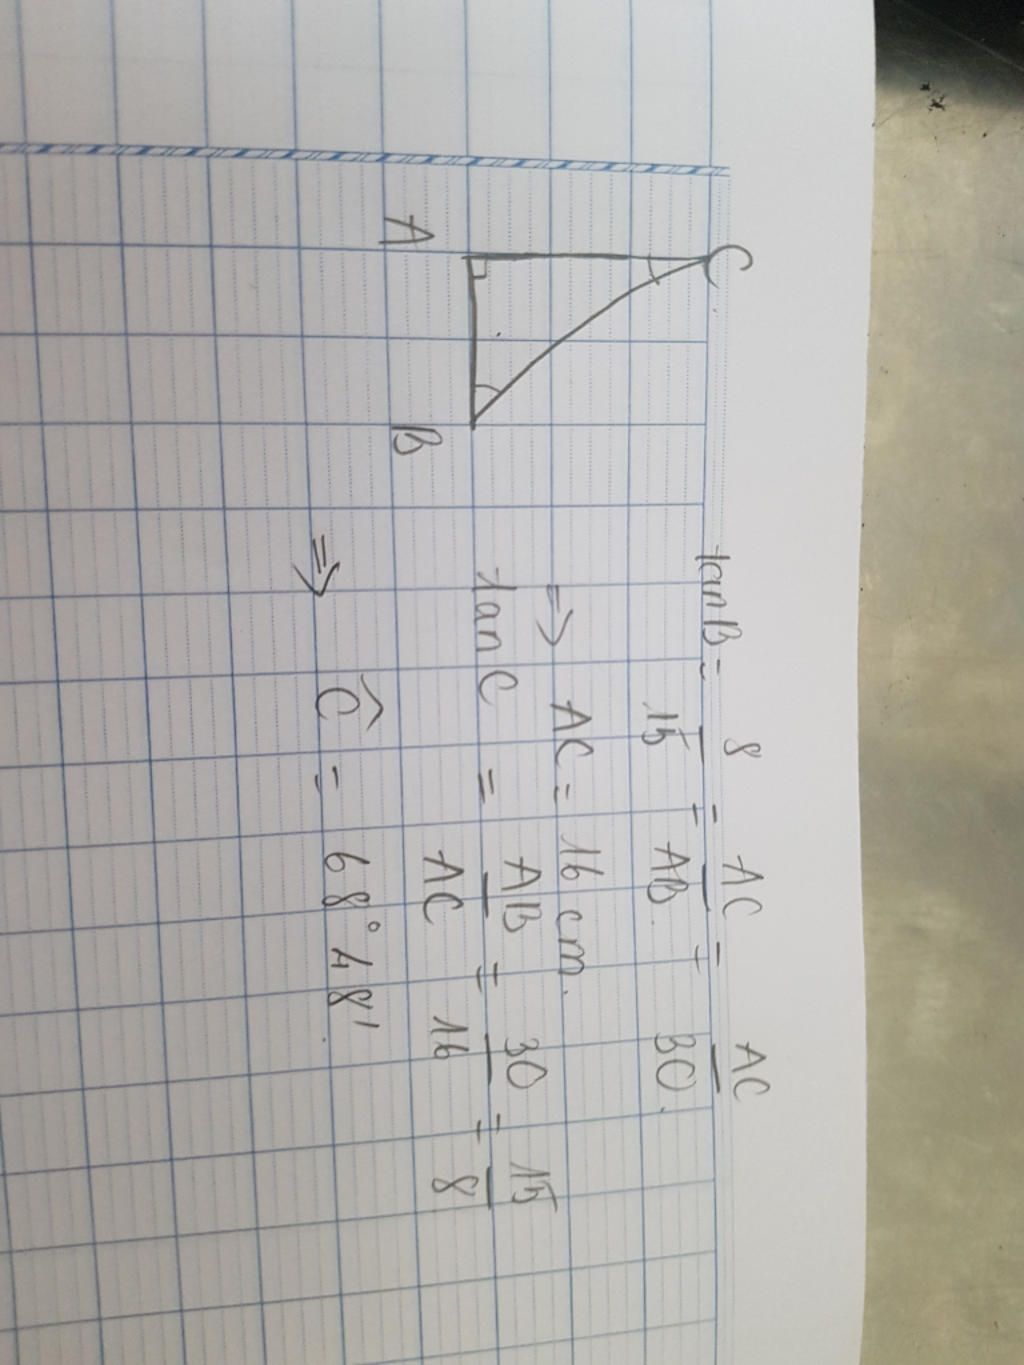 C
A
B
tan B = 8/15 = AC/AB = AC/30.
⇒ AC = 16 cm.
tan C = AB/AC = 30/16 = 15/8
⇒ Ĉ = 68° 48'